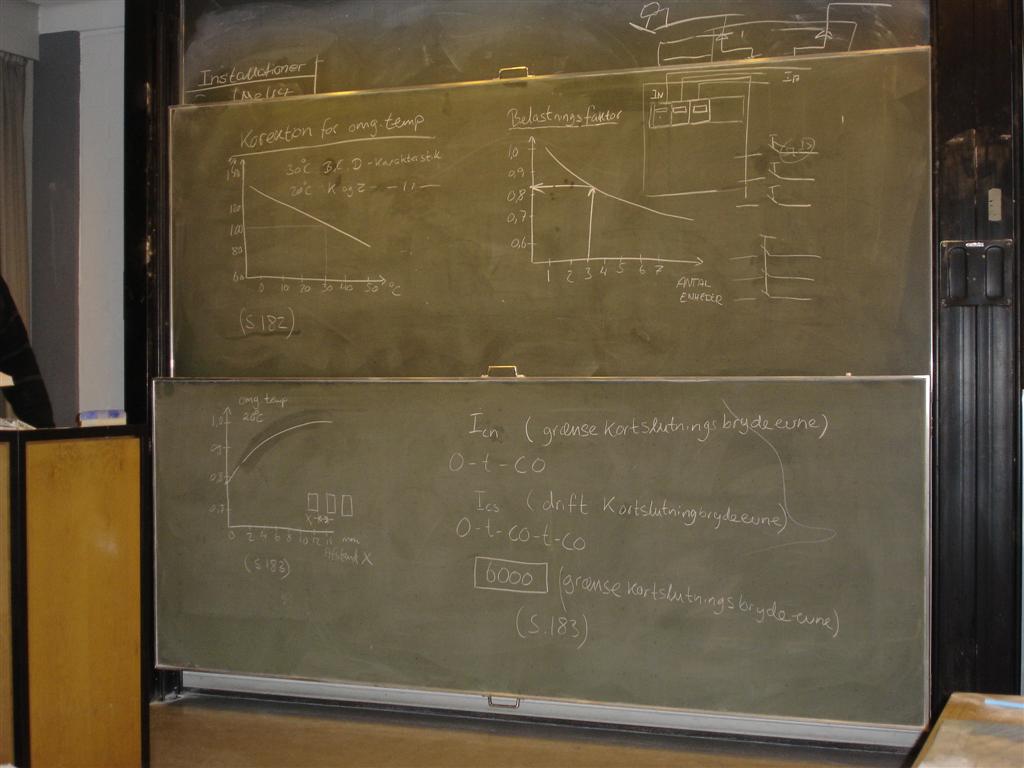 Installationer
IN
Korektion for omg. temp
30°C B.C. D - Karakteristik
20°C K og Z — 11 —
120
100
80
60
0 10 20 30 40 50 °C
(S.182)
Belastningsfaktor
1,0
0,9
0,8
0,7
0,6
1 2 3 4 5 6 7
ANTAL
ENHEDER
omg temp
20°C
1,0
0,8
0 2 4 6 8 10 12 14 mm
Afstand X
(S.183)
Icn (grænse Kortslutnings brydeevne)
O-t-CO
Ics (drift Kortslutningbrydeevne)
O-t-CO-t-CO
6000 (grænse Kortslutningsbryde-evne)
(S.183)